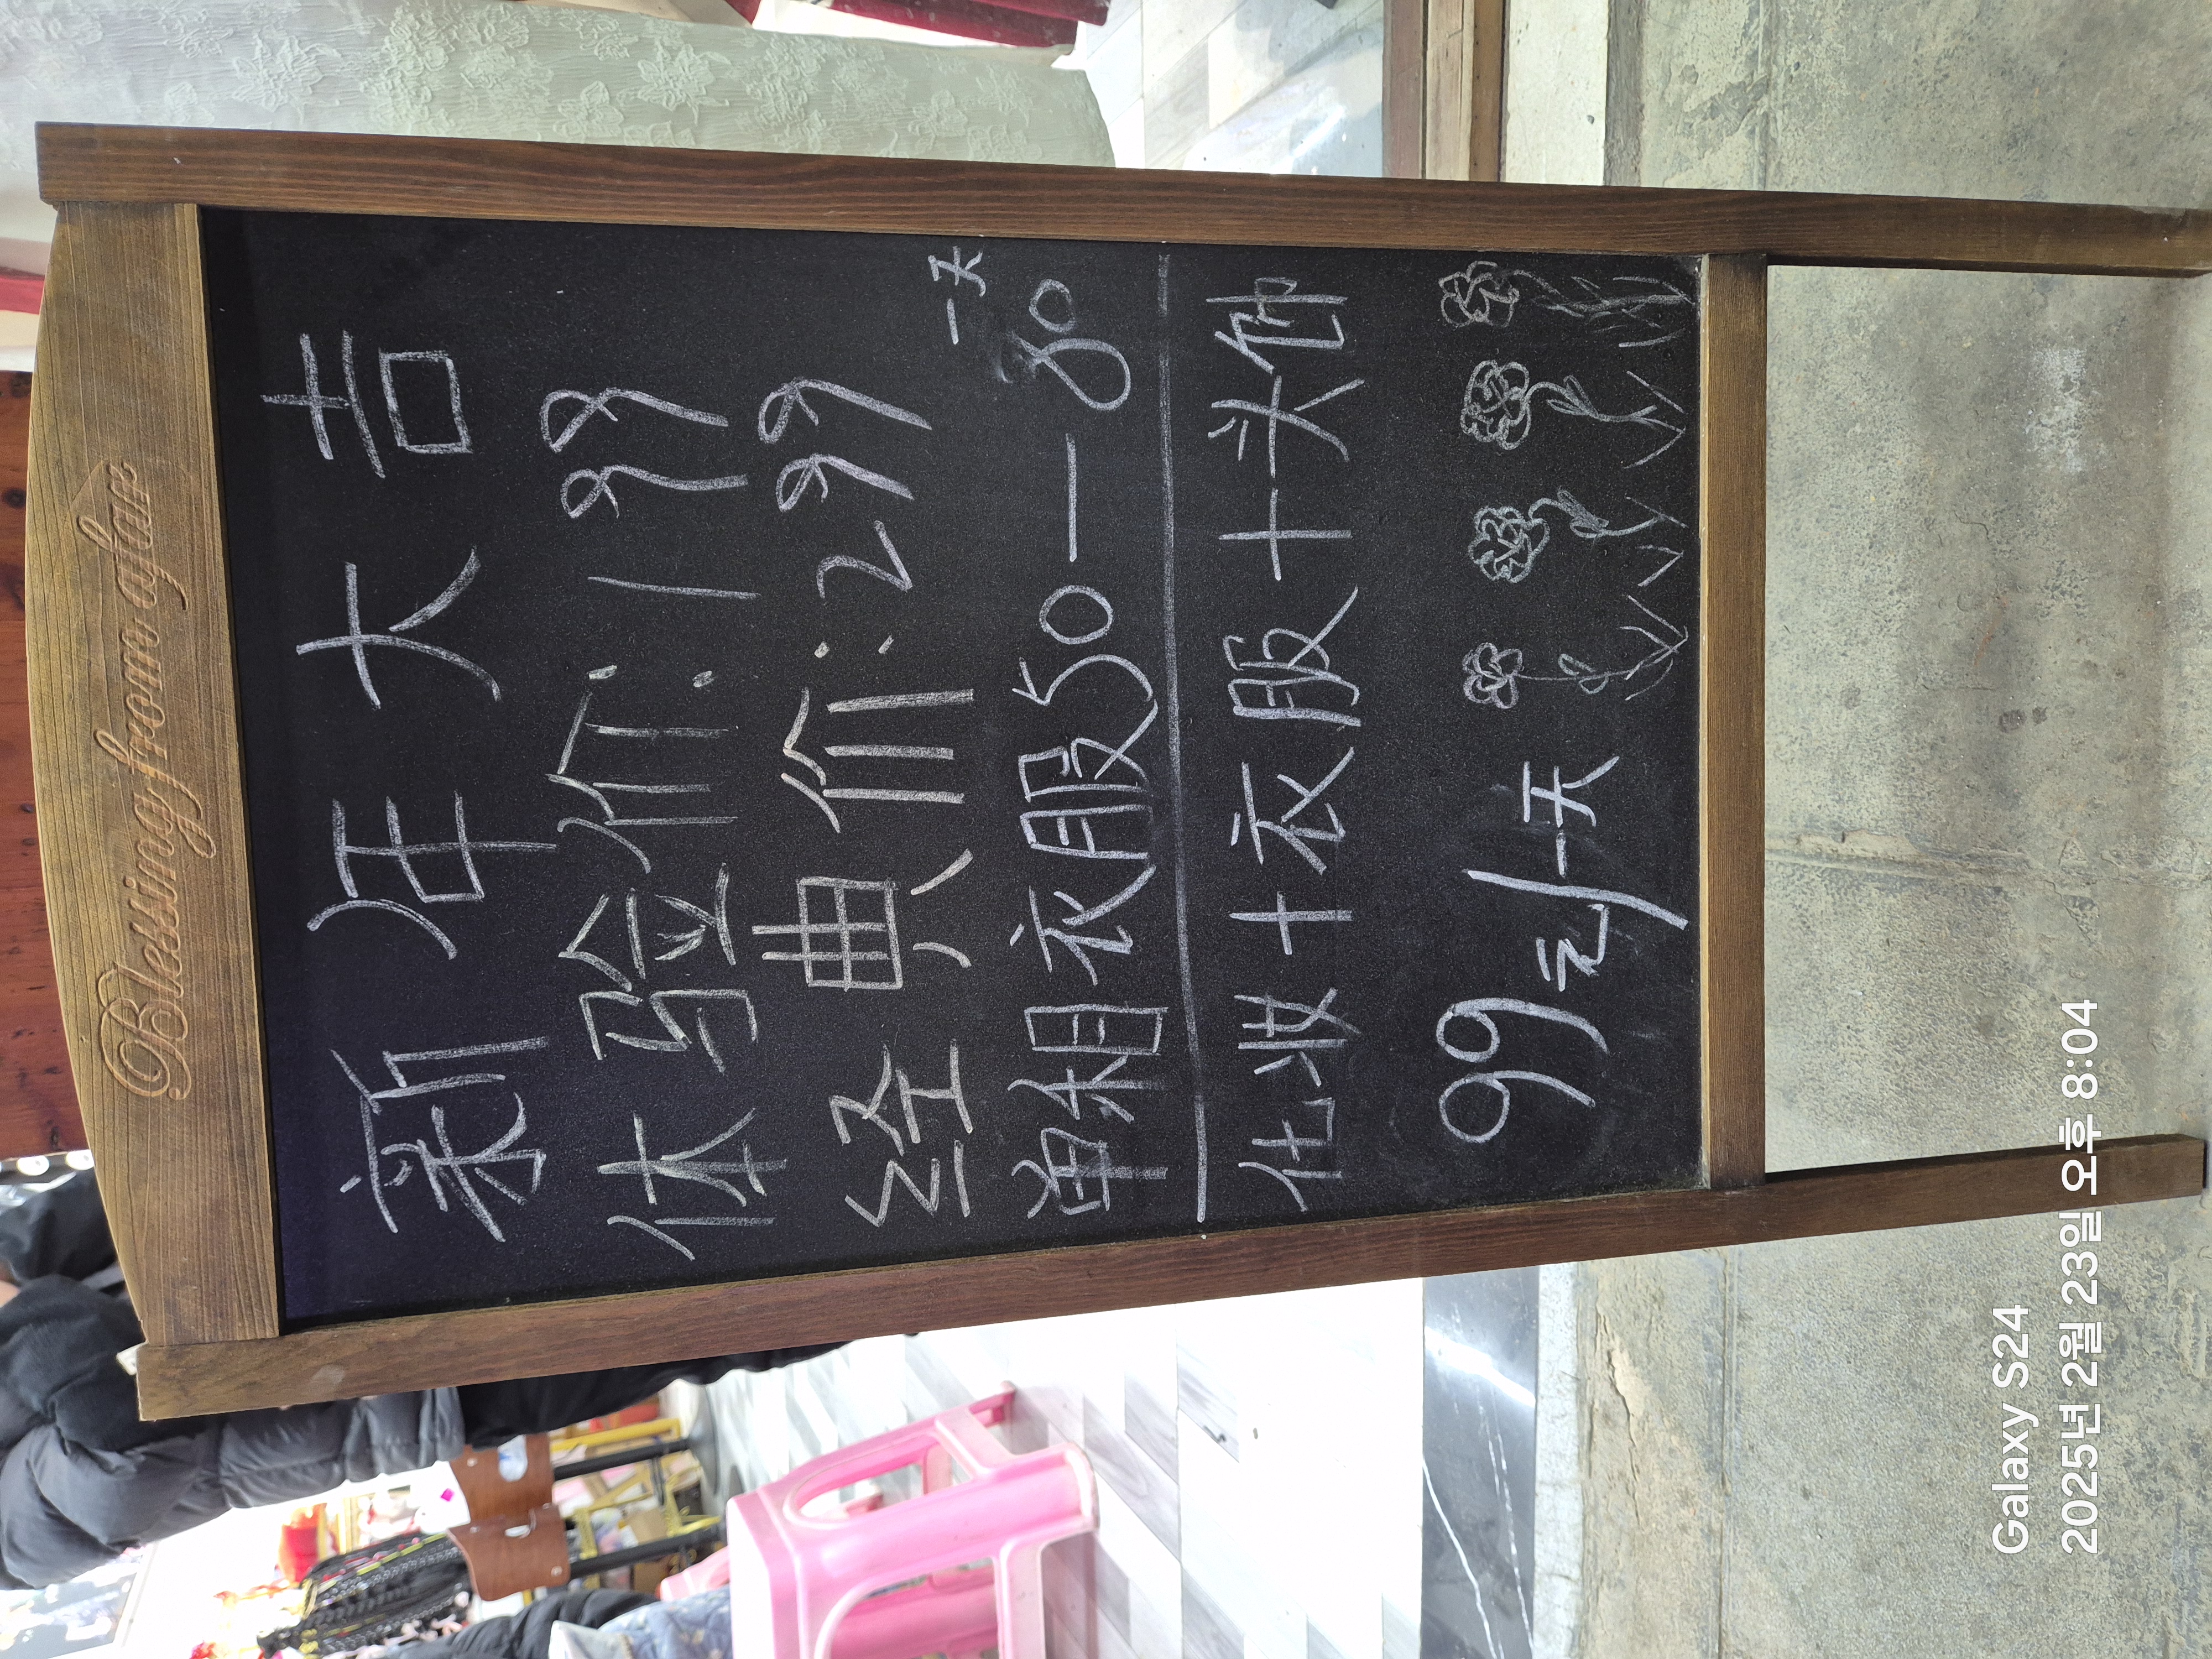 Blessing from afar
新年大吉
体验价:199
经典价:299
单租衣服50一80一天
化妆+衣服+头饰
99元/一天
Galaxy S24
2025년 2월 23일 오후 8:04